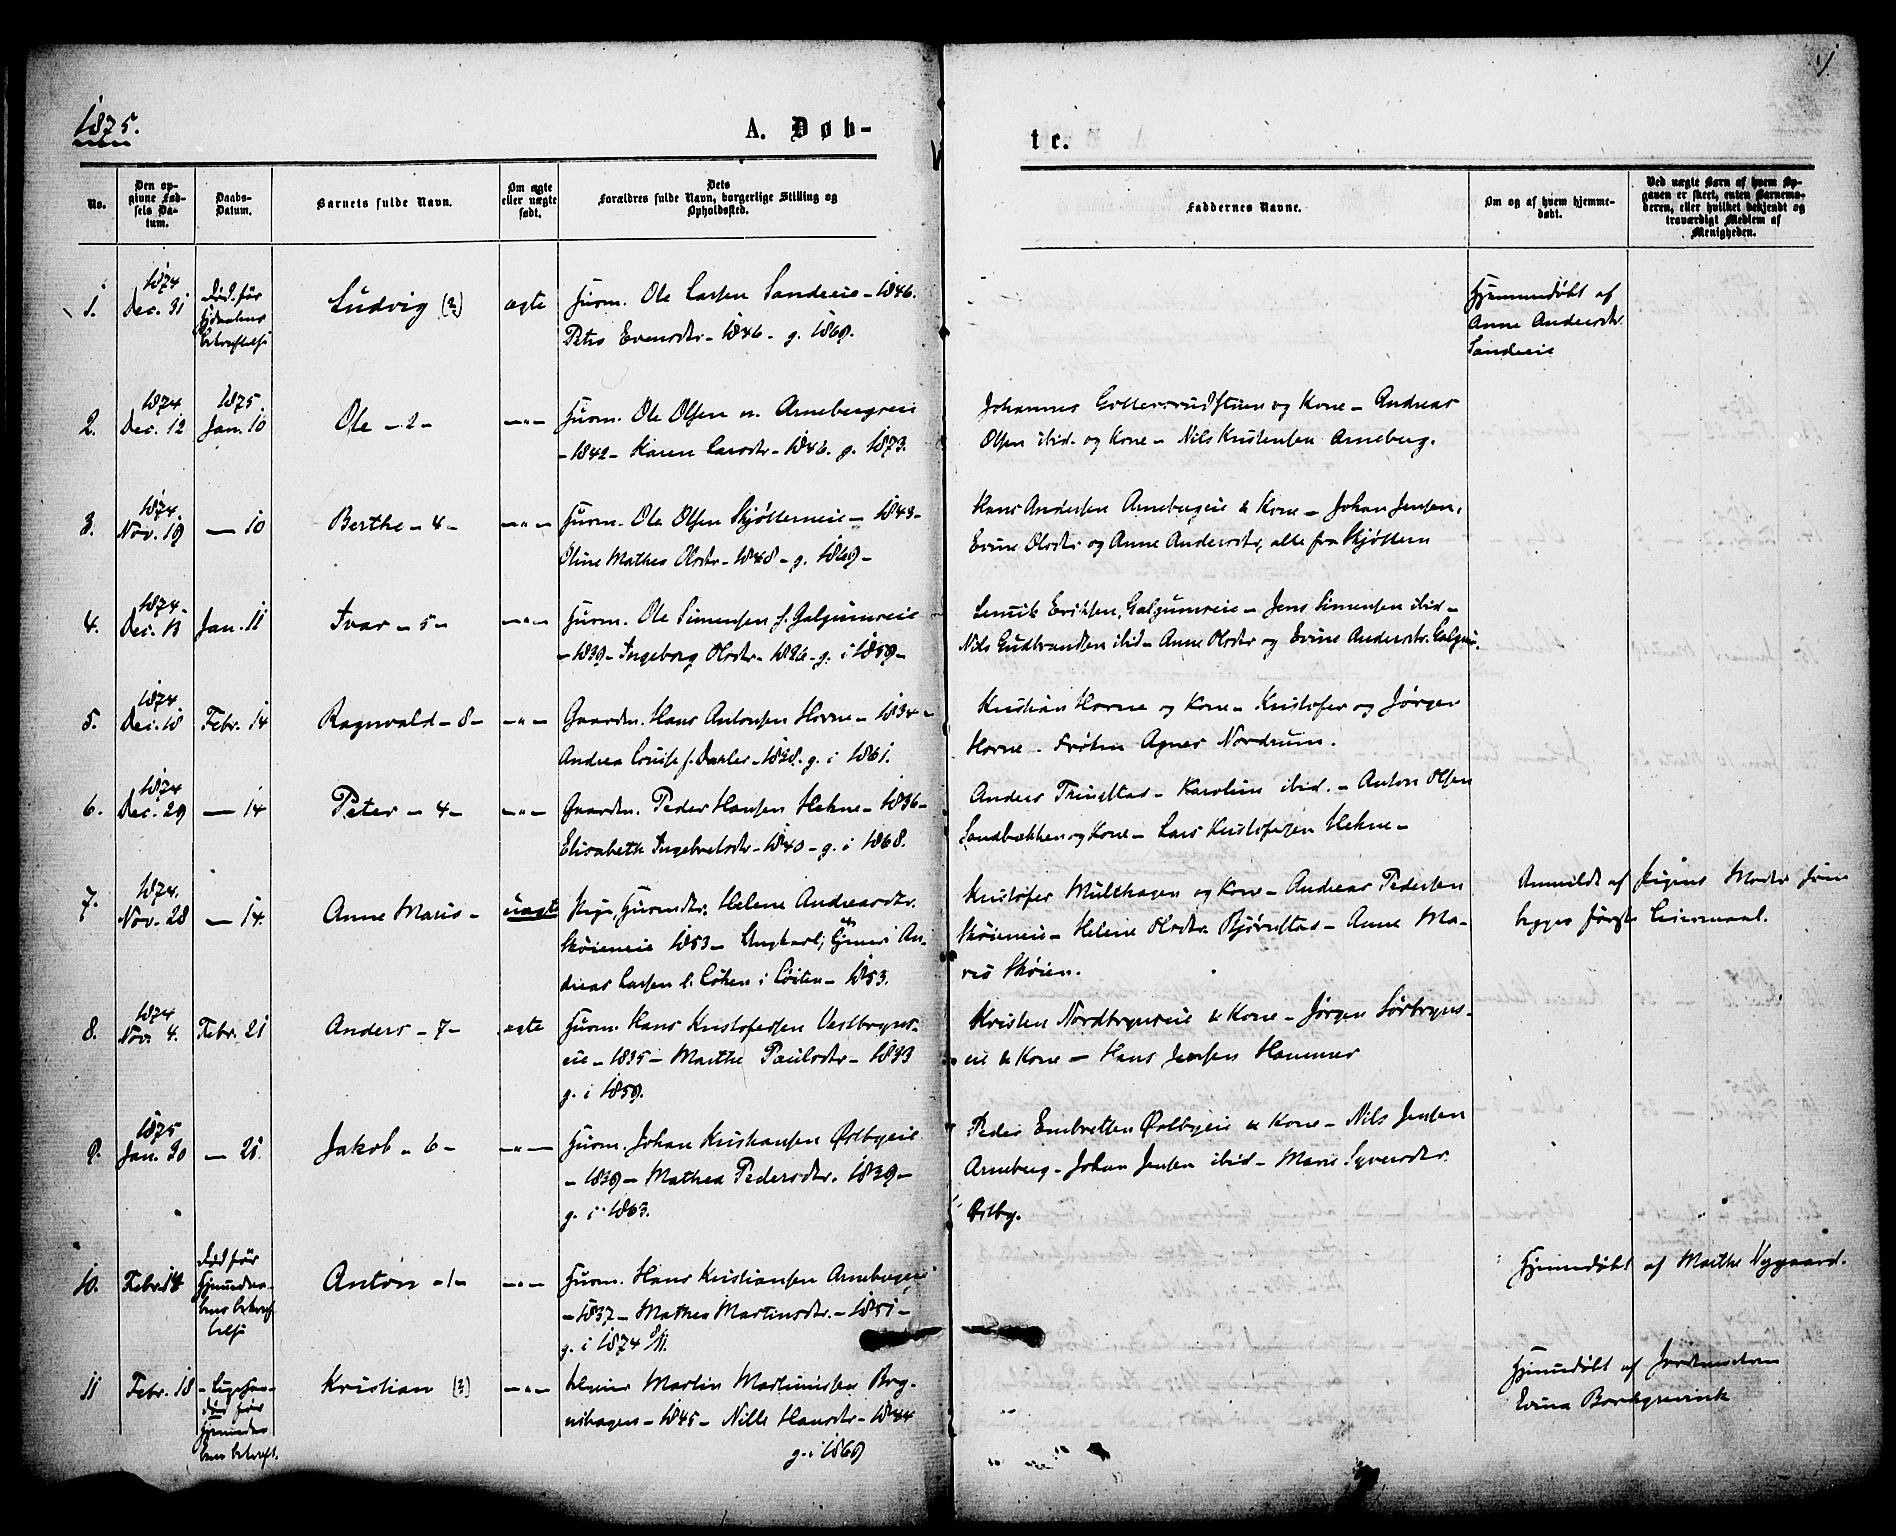 1875.
A. Døb-
te.
No.
Den op-
givne Fød-
sels Da-
tum.
Daabs-
Datum.
Barnets fulde Navn.
Om ægte
eller uægte
født.
Dets
Forældres fulde Navn, borgerlige Stilling og
Opholdssted.
Faddernes Navne.
Om og af hvem hjemme-
døbt.
Ved uægte Børn af hvem Op-
gaven er skeet, enten Barnemo-
deren, eller hvilket bekjendt og
troværdigt Medlem af
Menigheden.
1.
1874
Dec. 31
Død før
Hjdaabens
bekræftelse
Ludvig (2)
ægte
Huusm. Ole Larsen Sandeeie - 1846.
Petra Evensdtr - 1846 - g. 1868.
Hjemmedøbt af
Anne Andersdtr
Sandeeie
2.
1874
Dec. 12
1875
Jan. 10
Ole - 2 -
- " -
Huusm. Ole Olsen Arnebergeie
- 1842 - Karen Larsdtr - 1846. g. 1873.
Johannes Gottersrudstuen og Kone - Andreas
Olsen ibid. og Kone - Nils Kristensen Arneberg.
3.
1874.
Nov. 19
- 10
Berthe - 4 -
- " -
Huusm. Ole Olsen Skjøttemeie - 1843 -
Oline Mathea Olsdtr - 1848 - g. 1869 -
Hans Andersen Arnebergeie & Kone - Johan Jensen,
Evine Olsdtr og Anne Andersdtr, alle fra Skjøttem
4.
1874.
Dec. 13
Jan. 11
Ivar - 5 -
- " -
Huusm. Ole Simensen f. Galgumseie
- 1839 - Ingeborg Olsdtr - 1826 - g. i 1859 -
Eriksen, Galgumseie - Jens Simensen ibid -
Nils Gudbrandsen ibid - Anne Olsdtr og Evine Andersdtr. Galgum.
5.
1874.
Dec. 18
Febr. 14
Ragnvald - 8 -
- " -
Gaardm. Hans Antonsen Hovne - 1834 -
Andrea Louise f. Darler - 1838. g. i 1861.
Kristian Hovne og Kone - Kristofer og Jørgen
Hovne - Frøken Agnes Nordrum.
6.
1874
Dec. 29
- 14
Peter - 4 -
- " -
Gaardm. Peder Hansen Hekne - 1836 -
Elisabeth Ingebretsdtr - 1840 - g. i 1868.
Anders Trindstad - Karoline ibid. - Anton Olsen
Sandbækken og Kone - Lars Kristofersen Hekne -
7.
1874.
Nov. 28
- 14.
Anne Marie -
uægte
Pige, Huusmdtr. Helene Andreasdtr.
Skøieneie 1853 - Ungkarl, An-
dreas Larsen Løken i Løiten - 1853.
Kristofer Multhagen og Kone - Andreas Pedersen
Skøieneie - Helene Olsdtr. Bjørnstad - Anne Ma-
rie Skøien.
Anmeldt af Pigens Moder for
begges første Leiermaal.
8.
1874
Nov. 4.
Febr. 21
Anders - 7 -
ægte
Huusm. Hans Kristofersen Vestbryns-
eie - 1835 - Marthe Paulsdtr - 1833
g. i 1859.
Kristen Nordbrynseie & Kone - Jørgen Sørbryns-
eie & Kone - Hans Jensen Hammer
9.
1875
Jan. 30
- 21.
Jakob - 6 -
- " -
Huusm. Johan Kristiansen Østbyeie
- 1839 - Mathea Pedersdtr. 1839 -
g. i 1863.
Peder Embretsen Østbyeie & Kone - Nils Jensen
Arneberg - Johan Jensen ibid - Marie Syversdtr.
Østby.
10.
Febr. 14
Død før
Hjemmedaa-
bens bekræf-
telse
Anton - 1 -
- " -
Huusm. Hans Kristiansen Arnebergeie
- 1837 - Mathea Martinsdtr. - 1851 -
g. i 1874 8/11.
Hjemmedøbt af Marthe Nygaard.
11
Febr. 18
- Ligesaa -
død før
Hjemmedaa-
bens bekræft.
Kristian (3)
- " -
Martin Martinusen Bryn-
nihagen - 1845 - Nille Hansdtr - 1844
g. i 1869
Hjemmedøbt af Jordemoderen
Evina Borchgrevink